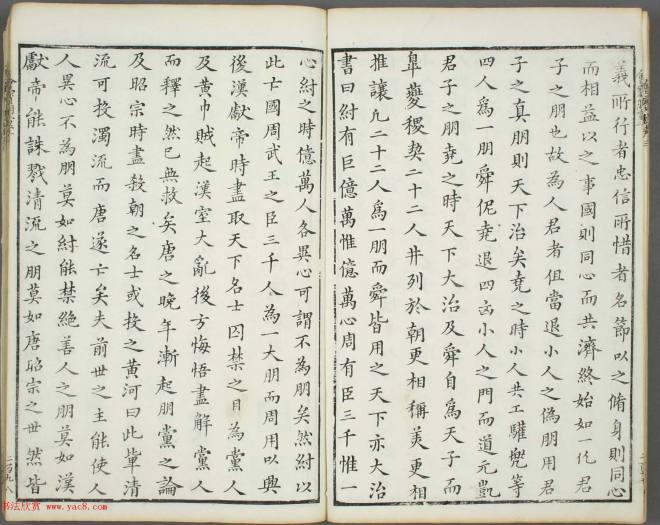 義所行者忠信所惜者名節以之脩身則同心
而相益以之事國則同心而共濟終始如一此君
子之朋也故為人君者但當退小人之偽朋用君
子之真朋則天下治矣堯之時小人共工驩兜等
四人為一朋舜佐堯退四凶小人之門而道元凱
君子之朋堯之時天下大治及舜自為天子而
皐夔稷契二十二人並列於朝更相稱美更相
推讓凡二十二人爲一朋而舜皆用之天下亦大治
書曰紂有臣億萬惟億萬心周有臣三千惟一
心紂之時億萬人各異心可謂不為朋矣然紂以
此亡國周武王之臣三千人為大朋而周用以興
後漢獻帝時盡取天下名士囚禁之目為黨人
及黃巾賊起漢室大亂後方悔悟盡解黨人
而釋之然已無救矣唐之晚年漸起朋黨之論
及昭宗時盡殺朝之名士或投之黃河曰此輩清
流可投濁流而唐遂亡矣夫前世之主能使人
人異心不為朋莫如紂能禁絕善人之朋莫如漢
獻帝能誅戮清流之朋莫如唐昭宗之世然皆
书法欣赏
www.yac8.com